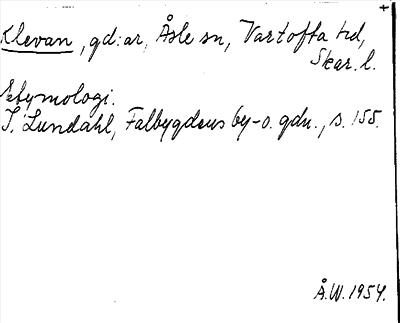 Klevan, gd:ar, Åsle sn, Vartofta hd,
Skar. l.
Etymologi.
I. Lundahl, Falbygdens by-o. gdn., s. 155.
Å.W. 1954.